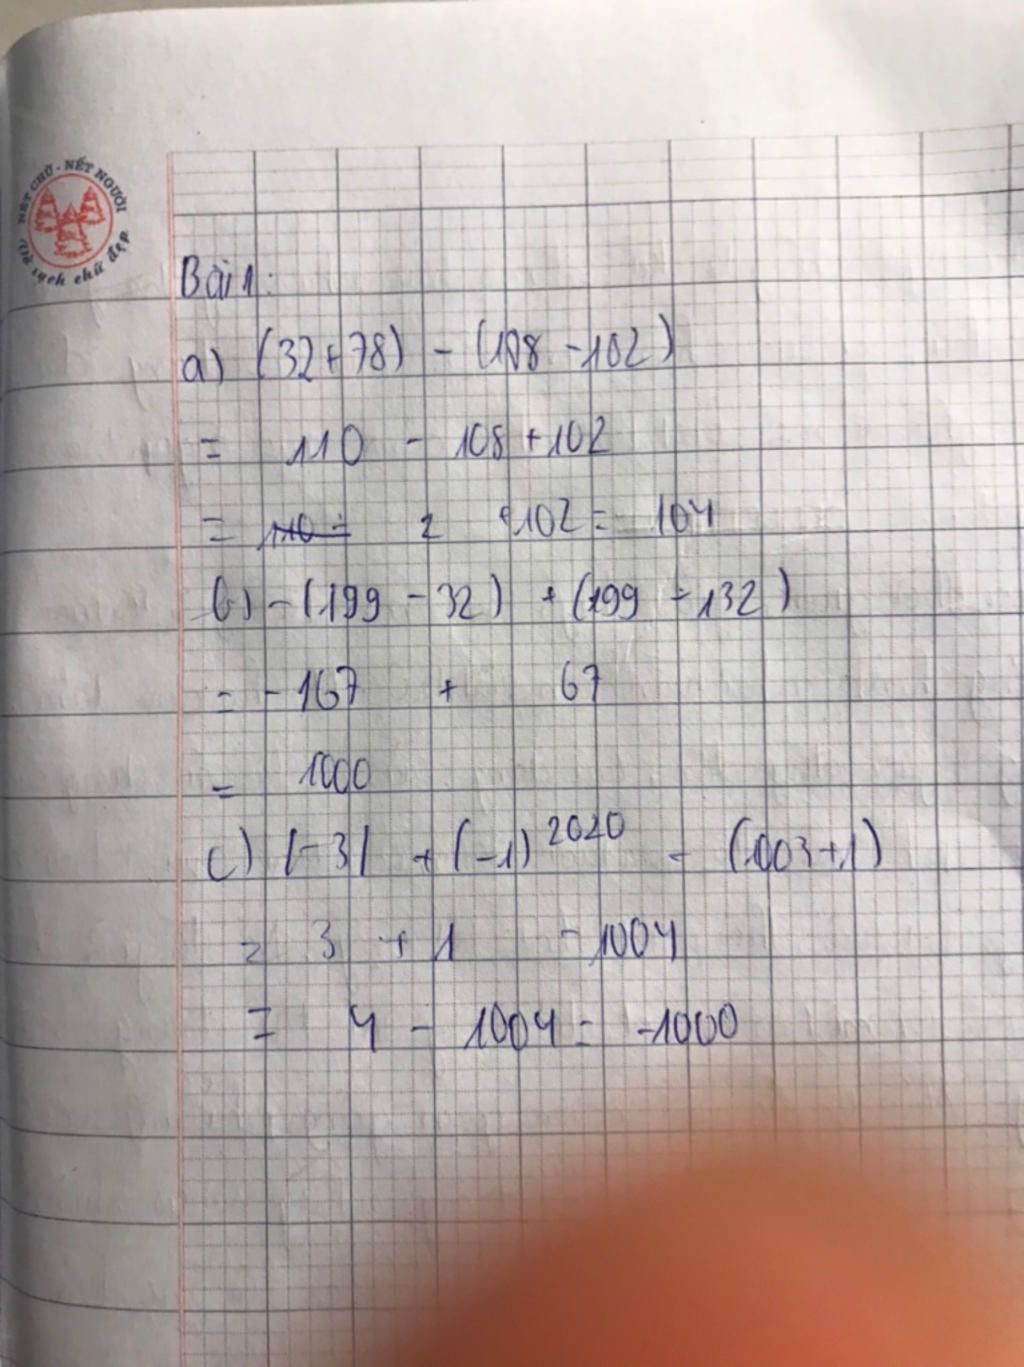 NÉT CHỮ - NẾT NGƯỜI
Vở sạch chữ đẹp
Bài 1:
a) (32+78) - (108 - 102)
= 110 - 108 + 102
= 110 - 2 +102 = 104
b) - (199 - 32) + (199 - 132)
= - 167 + 67
= 1000
c) |-3| + (-1)^2020 - (1003+1)
= 3 + 1 - 1004
= 4 - 1004 = -1000